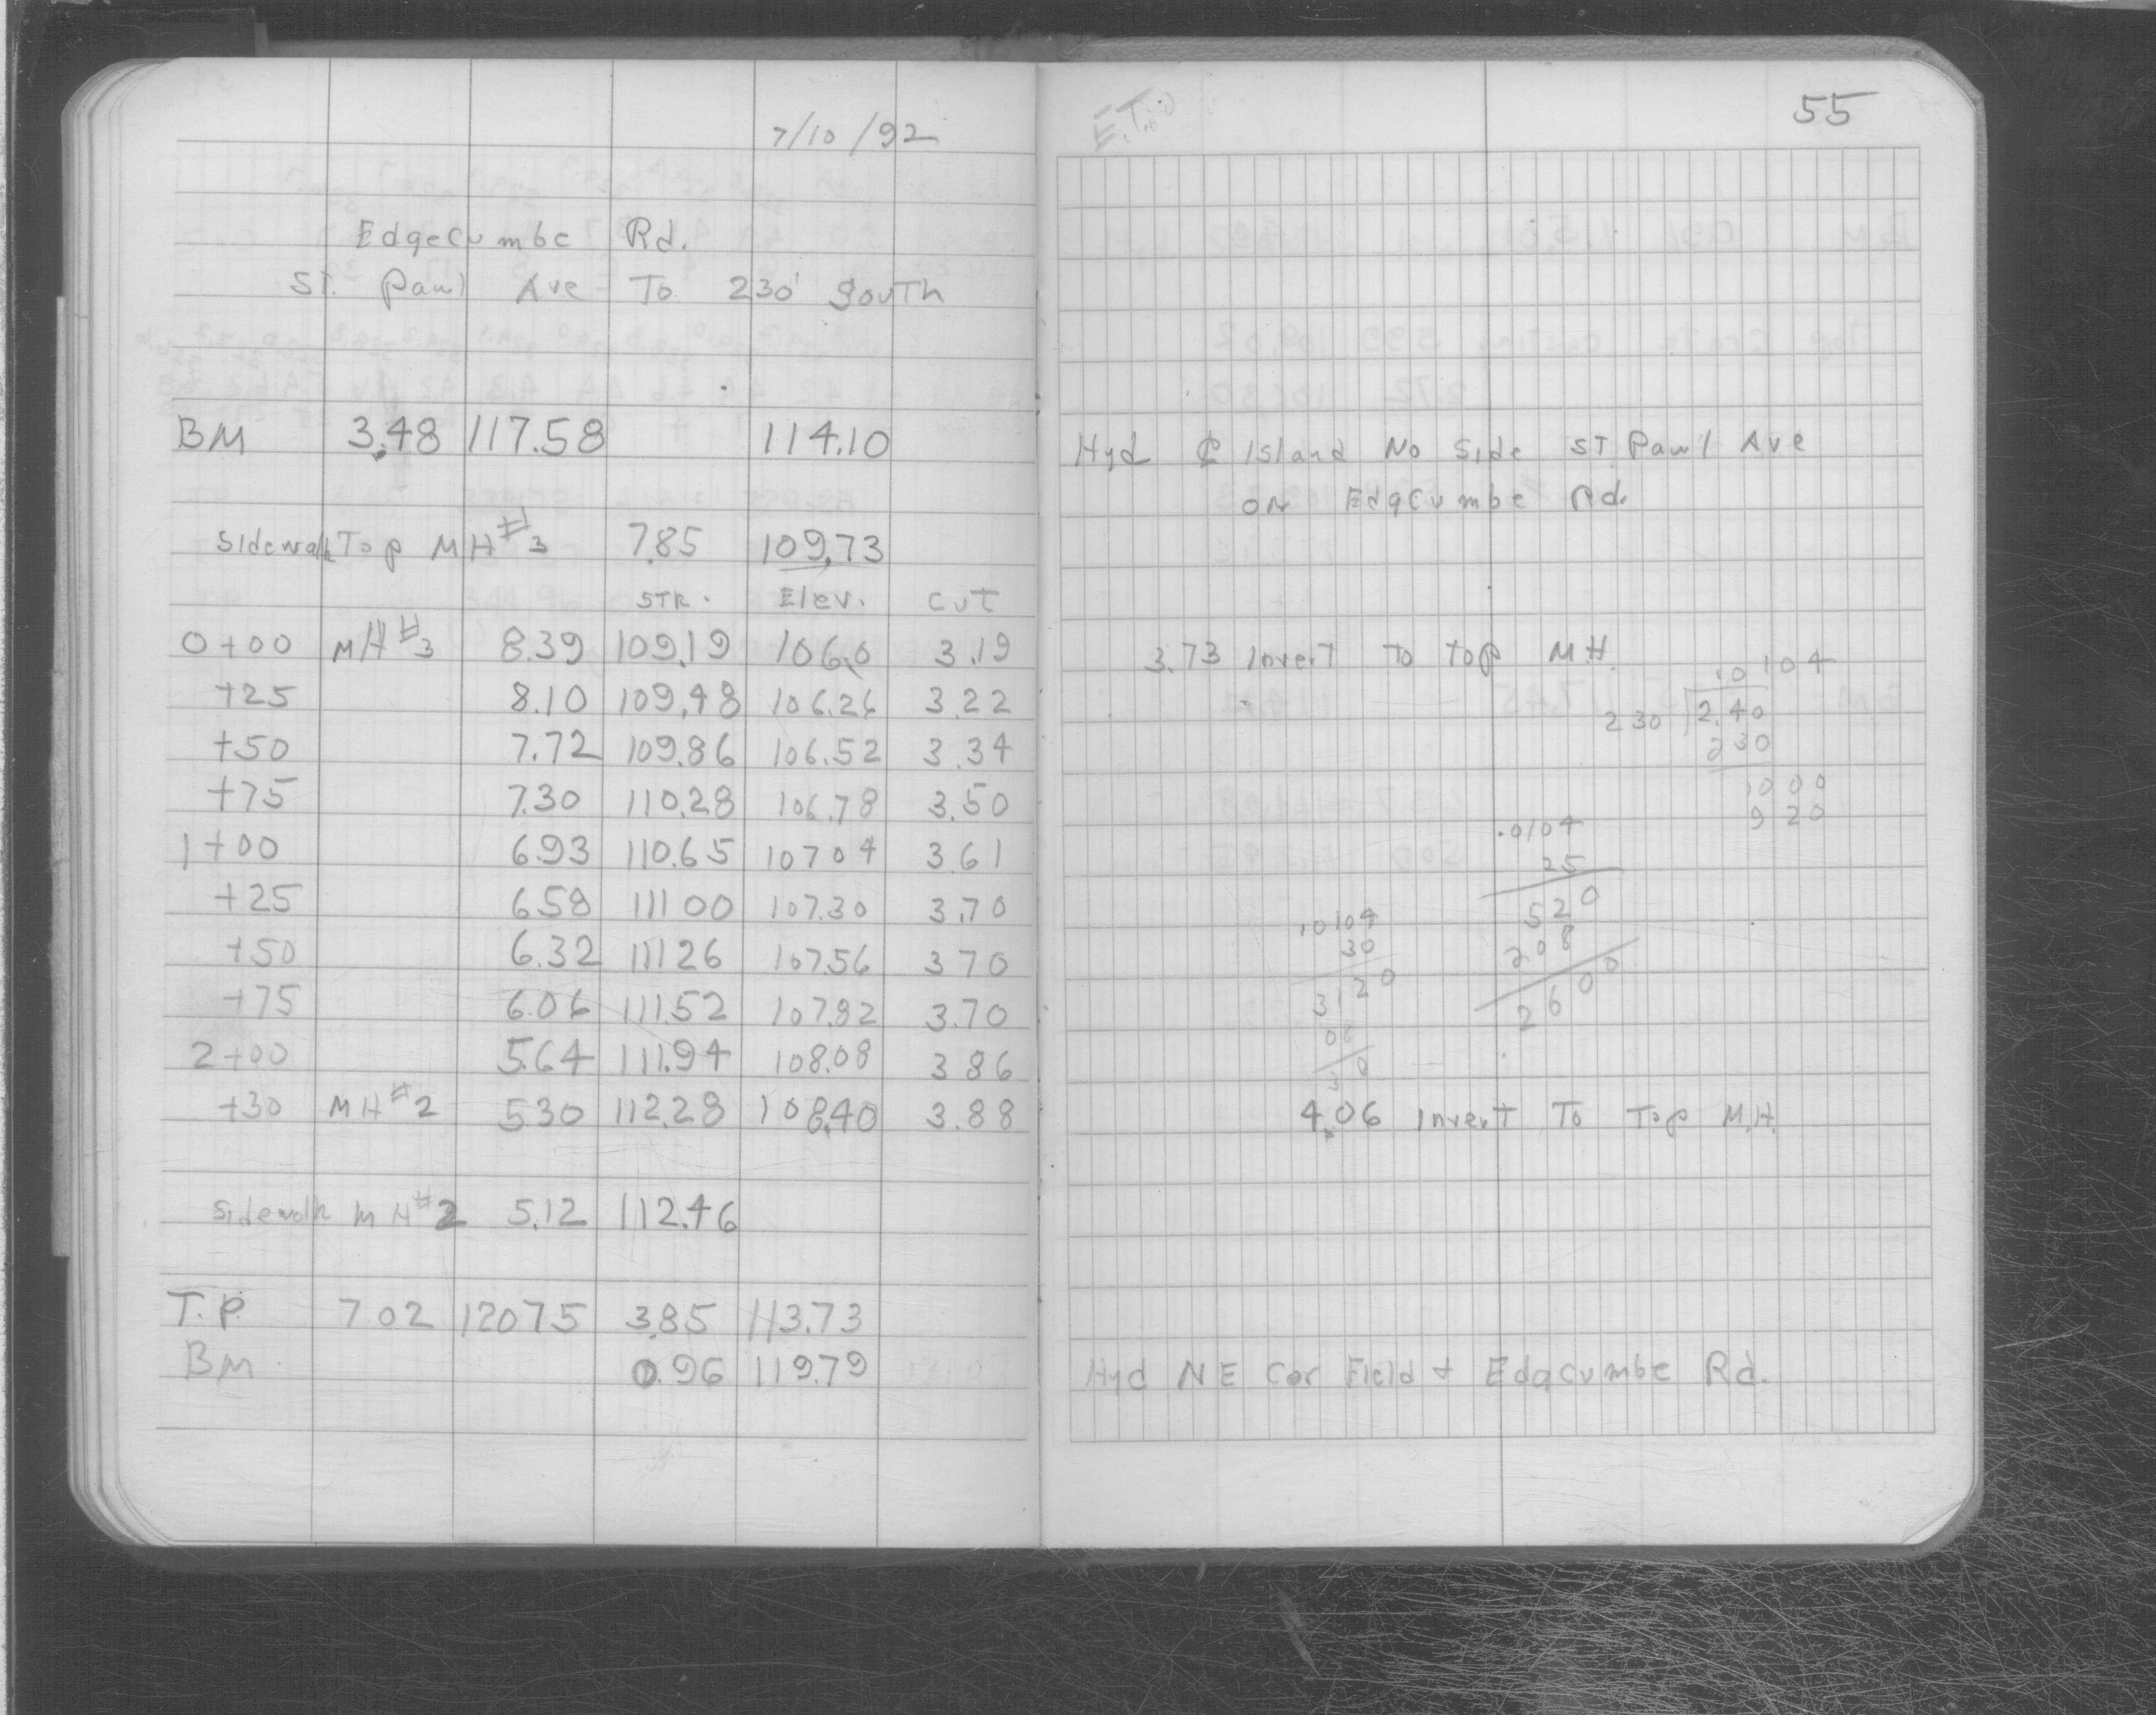 7/10/92
Edgecumbe Rd.
ST. Paul Ave To 230' South
BM 3.48 117.58 114.10
Sidewalk Top MH #3 7.85 109.73
STR. Elev. Cut
0+00 MH #3 8.39 109.19 106.0 3.19
+25 8.10 109.48 106.26 3.22
+50 7.72 109.86 106.52 3.34
+75 7.30 110.28 106.78 3.50
1+00 6.93 110.65 107 04 3.61
+25 6.58 111 00 107.30 3.70
+50 6.32 111 26 107.56 3 70
+75 6.06 111.52 107.82 3.70
2+00 5.64 111.94 108.08 3 86
+30 MH #2 5 30 112.28 108.40 3.88
Sidewalk MH #2 5.12 112.46
T.P. 7 02 120 75 3.85 113.73
BM 0.96 119.79
55
Hyd ℄ Island No Side ST. Paul Ave
on Edgcumbe Rd.
3.73 Invert To top M.H.
.0104
230 2.40
230
1000
920
.0104
25
520
208
2600
.0104
30
3120
4.06 Invert To Top M.H.
Hyd NE Cor Field + Edgcumbe Rd.